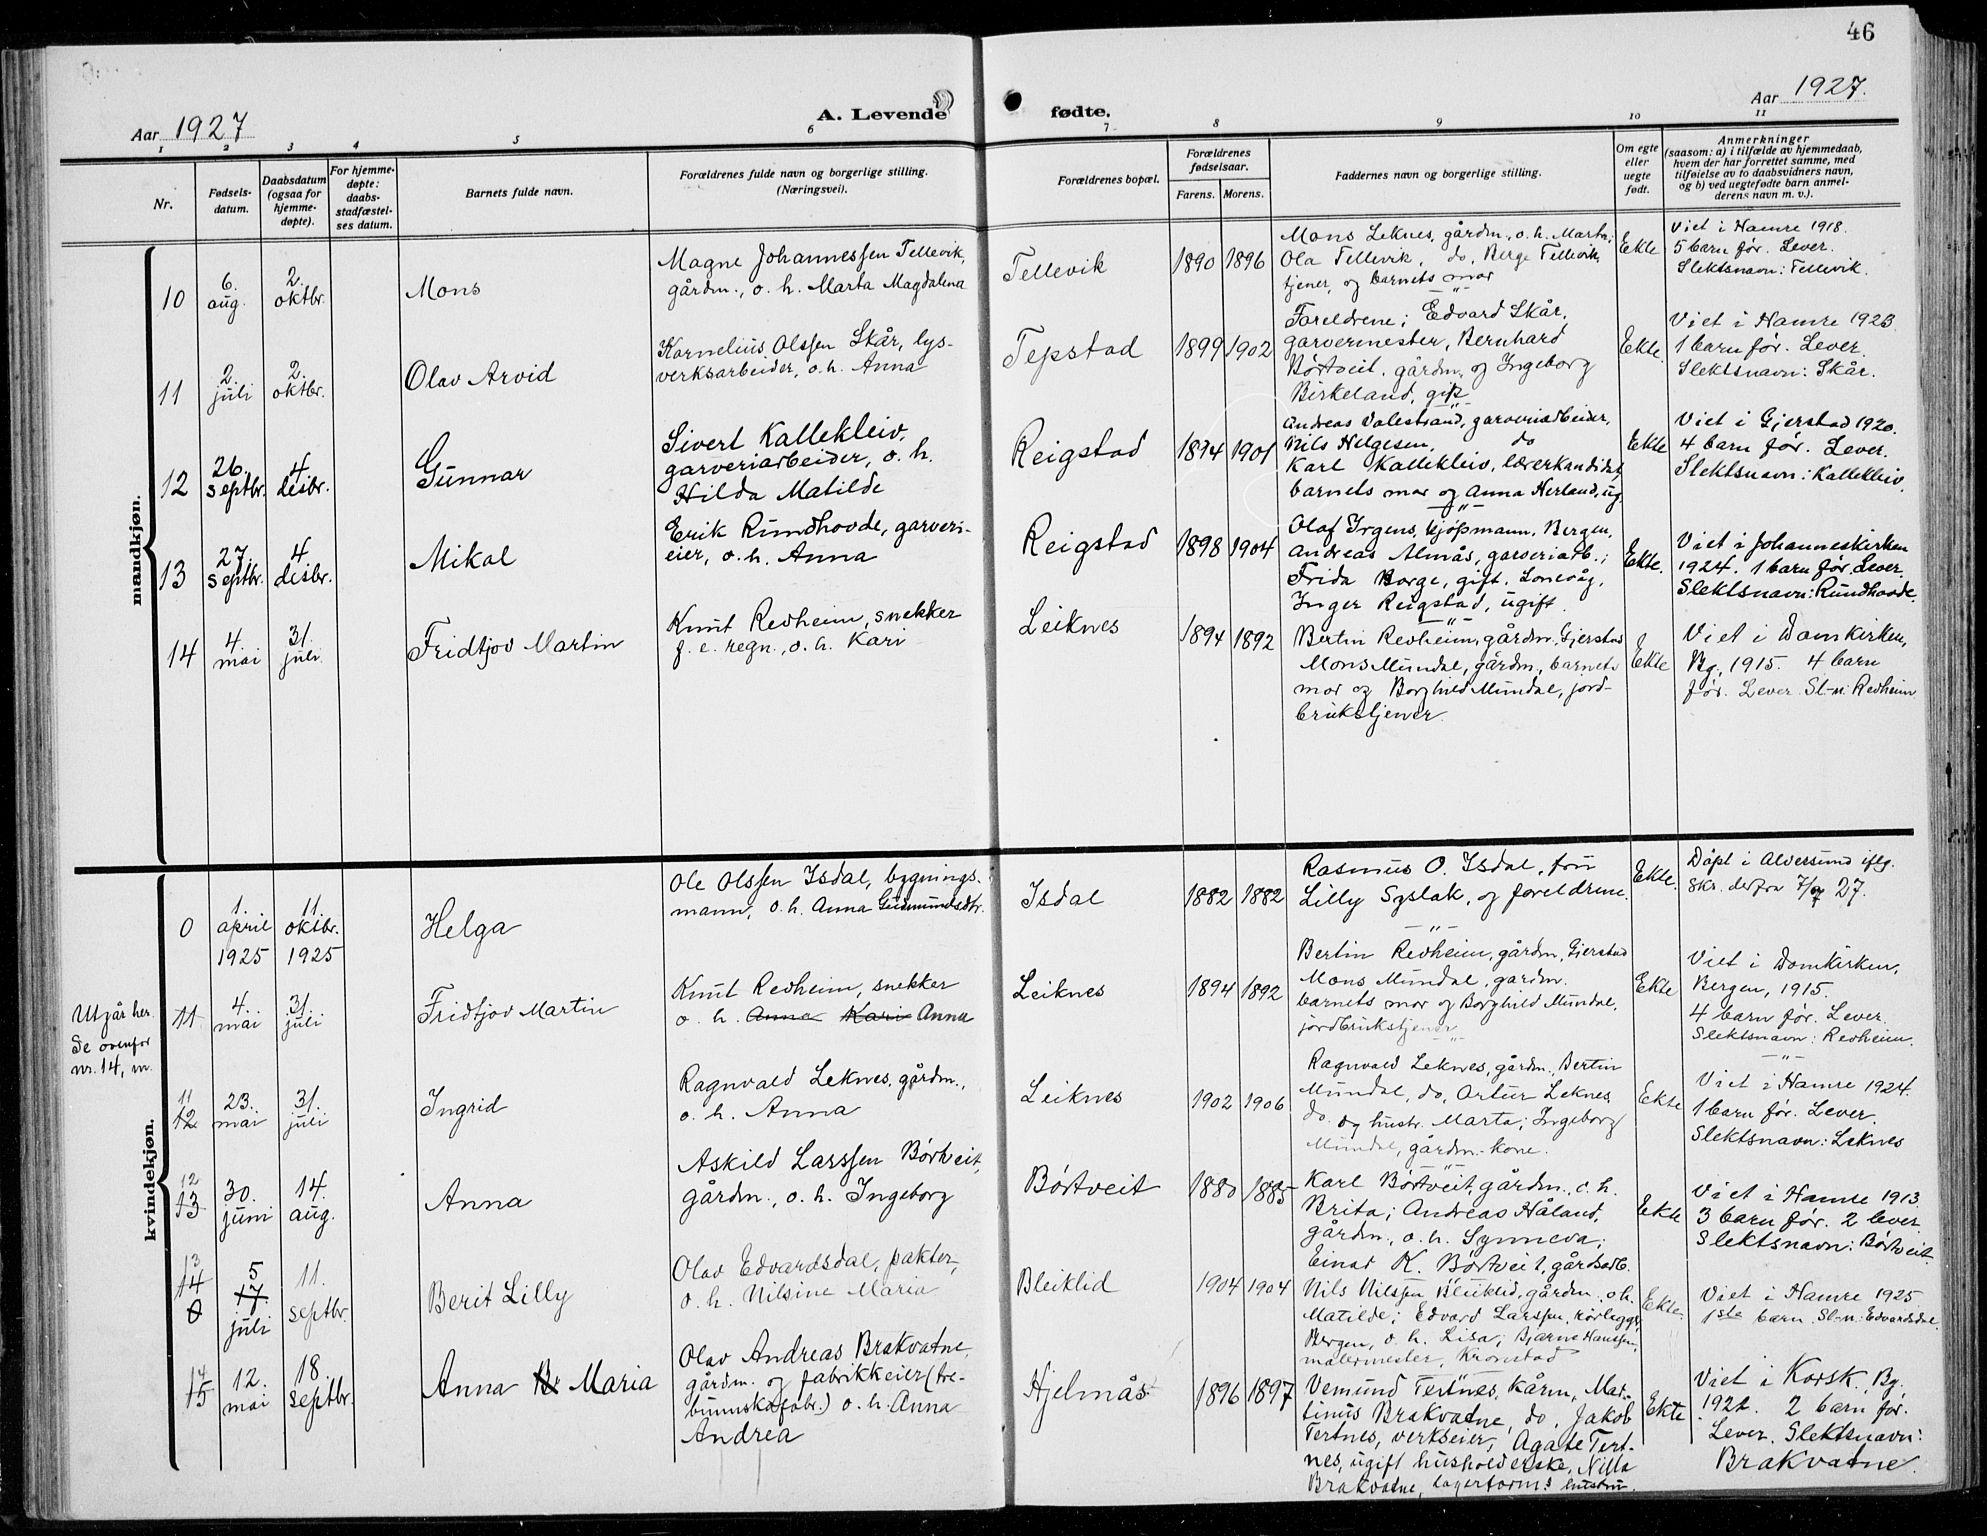 46
Aar 1927
A. Levende
fødte.
Aar 1927.
1 2 3 4 5 6 7 8 9 10 11
Nr.
Fødsels-
datum.
Daabsdatum
(ogsaa for
hjemme-
døpte).
For hjemme-
døpte:
daabs-
stadfæstel-
ses datum.
Barnets fulde navn.
Forældrenes fulde navn og borgerlige stilling.
(Næringsvei).
Forældrenes bopæl.
Forældrenes
fødselsaar.
Farens. Morens.
Faddernes navn og borgerlige stilling.
Om egte
eller
uegte
født.
Anmerkninger
(saasom: a) i tilfælde av hjemmedaab,
hvem der har forrettet samme, med
tilføielse av to daabsvidners navn,
og b) ved uegtefødte barn anmel-
derens navn m. v.).
mandkjøn.
10
6.
aug.
2.
oktbr.
Mons
Magne Johannessen Tellevik,
gårdm., o. h. Marta Magdalena
Tellevik
1890 1896
Mons Leknes, gårdm., o. h. Marta;
Ola Tellevik, do, Berge Tellevik,
tjener, og barnets mor
Ekte
Viet i Hamre 1918.
5 barn før. Lever.
Slektsnavn: Tellevik.
11
2.
juli
2.
oktbr.
Olav Arvid
Kornelius Olssen Skår, lys-
verksarbeider, o. h. Anna
Tepstad
1899 1902
Foreldrene; Edvard Skår,
garvermester, Bernhard
Børtveit, gårdm. og Ingeborg
Birkeland, gift
Ekte.
Viet i Hamre 1923.
1 barn før. Lever.
Slektsnavn: Skår.
12
26.
septbr.
4.
desbr.
Gunnar
Sivert Kallekleiv,
garveriarbeider, o. h.
Hilda Matilde
Reigstad
1894 1901
Andreas Valestrand, garveriarbeider,
Nils Helgesen, do
Karl Kallekleiv, lærerkandidat,
barnets mor og Anna Herland, ug.
Ekte
Viet i Gjerstad 1920.
4 barn før. Lever.
Slektsnavn: Kallekleiv.
13
27.
septbr.
4.
desbr.
Mikal
Erik Rundhovde, garveri-
eier, o. h. Anna
Reigstad
1898 1904
Olaf Irgens, kjøpmann, Bergen,
Andreas Almås, garveriarb.;
Frida Borge, gift, Lonevåg,
Inger Reigstad, ugift.
Ekte.
Viet i Johanneskirken
1924. 1 barn før. Lever.
Slektsnavn: Rundhovde.
14
4.
mai
31.
juli
Fridtjov Martin
Knut Revheim, snekker
f. e. regn., o. h. Kari
Leiknes
1894 1892
Bertin Revheim, gårdm. Gjerstad
Mons Mundal, gårdm., barnets
mor og Borghild Mundal, jord-
brukstjener.
Ekte
Viet i Domkirken,
Bg., 1915. 4 barn
før. Lever. Sl-n: Revheim
kvindekjøn.
0
1.
april
1925
11.
oktbr.
1925
Helga
Ole Olssen Isdal, bygnings-
mann, o. h. Anna Gudmundsdtr.
Isdal
1882 1882
Rasmus O. Isdal, fru
Lilly Syslak, og foreldrene.
Ekte.
Døpt i Alversund iflg.
skr. derfra 27.
Utgår her.
Se ovenfor
nr. 14, m.
11
4.
mai
31.
juli
Fridtjov Martin
Knut Revheim, snekker
o. h. Anna Kari Anna
Leiknes
1894 1892
Bertin Revheim, gårdm., Gjerstad
Mons Mundal, gårdm.
barnets mor og Borghild Mundal,
jordbrukstjener
Ekte
Viet i Domkirken,
Bergen, 1915.
4 barn før. Lever.
Slektsnavn: Revheim.
11
12
23.
mai
31.
juli
Ingrid
Ragnvald Leknes, gårdm.,
o. h. Anna
Leiknes
1902 1906
Ragnvald Leknes, gårdm., Bertin
Mundal, do, Artur Leknes
do. og hustr. Marta; Ingeborg
Mundal, gårdm.-kone.
Ekte
Viet i Hamre 1924.
1 barn før. Lever.
Slektsnavn: Leknes
12
13
30.
juni
14.
aug.
Anna
Askild Larssen Børtveit,
gårdm., o. h. Ingeborg
Børtveit
1880 1885
Karl Børtveit, gårdm., o. h.
Brita; Andreas Håland,
gårdm., o. h. Synneva;
Einar K. Børtveit, gårdsarb.
Ekte
Viet i Hamre 1913.
3 barn før. 2 lever.
Slektsnavn: Børtveit.
13
14
0
5
17.
juli
11.
septbr.
Berit Lilly
Olav Edvardsdal, pakter,
o. h. Nilsine Maria
Bleiklid
1904 1904
Nils Nilssen Bleiklid, gårdm., o. h.
Matilde; Edvard Larssen, rørlegger,
Bergen, o. h. Lisa; Bjarne Hanssen,
malermester, Kronstad
Ekte.
Viet i Hamre 1925
1ste barn. Sl-n: Edvardsdal.
14
15
12.
mai
18.
septbr.
Anna Maria
Olav Andreas Brakvatne,
gårdm. og fabrikkeier (tre-
o. h. Anna
Andrea
Hjelmås
1896 1897
Vemund Tertnes, kårm., Mar-
tinus Brakvatne, do, Jakob
Tertnes, verkseier, Agate Tert-
nes, ugift husholderske, Nilla
Brakvatne, lagerform.s hustru.
Ekte
Viet i Korsk., Bg.,
1921. 2 barn før.
Lever. Slektsnavn:
Brakvatne.